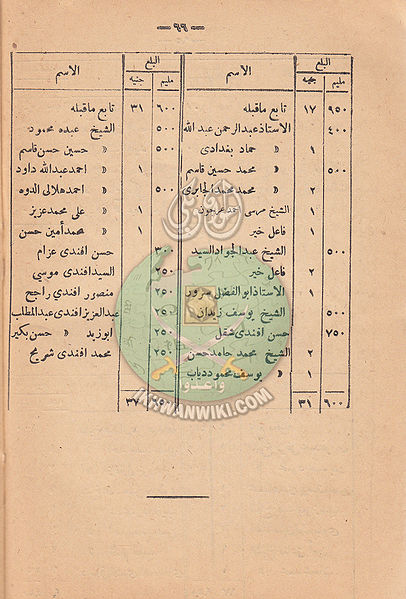 — ٩٩ —
المبلغ الاسم المبلغ الاسم
مليم جنيه مليم جنيه
٩٥٠ ١٧ تابع ماقبله
٤٠٠ الاستاذ عبد الرحمن عبد الله
١ » حماد بغدادى
٥٠٠ » محمد حسين قاسم
٢ » محمد محمد الجابرى
١ الشيخ مرسى احمد عرجون
١ فاعل خير
٥٠٠ الشيخ عبد الجواد السيد
٢ فاعل خير
١ الاستاذ ابو الفضل سرور
٥٠٠ الشيخ يوسف زيدان
٧٥٠ حسن افندى شقل
٢ الشيخ محمد حامد حسن
١ » يوسف محمود دياب
٦٠٠ ٣١
٦٠٠ ٣١ تابع ماقبله
٥٠٠ الشيخ عبده محمود
٥٠٠ » حسين حسن قاسم
١ » احمد عبد الله داود
٥٠٠ » احمد هلالى الدوه
١ » على محمد عزيز
١ » محمد أمين حسن
٣٠٠ حسن افندى عزام
٢٥٠ السيد افندى موسى
٢٥٠ منصور افندى راجح
٢٥٠ عبد العزيز افندى عبد المطلب
٢٥٠ ابو زيد » حسن بكير
٢٥٠ محمد افندى شريح
٦٥٠ ٣٧
وأعدوا
IKHWANWIKI.COM